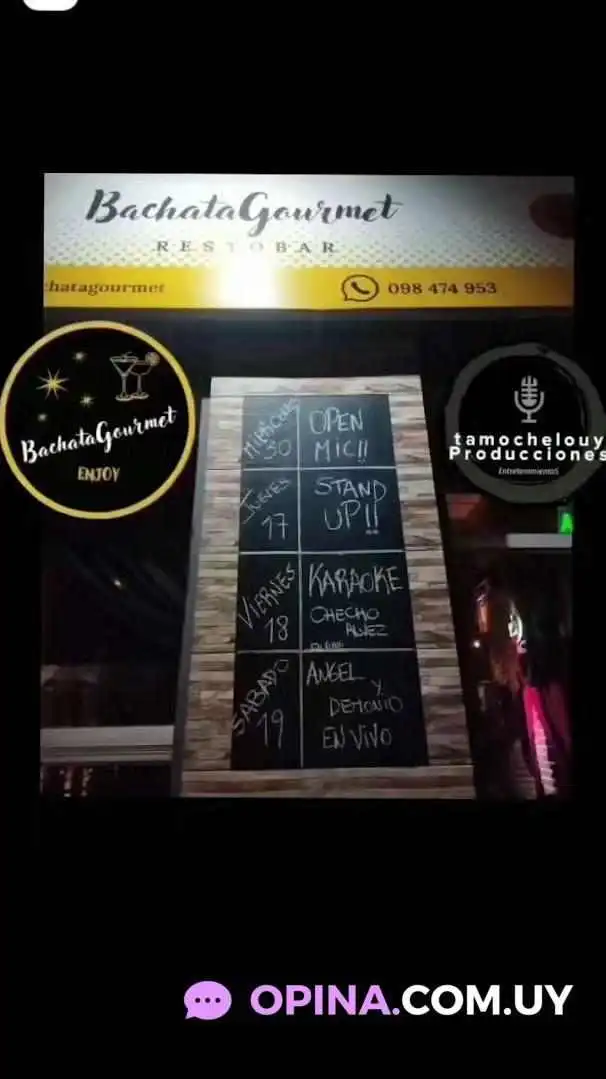 BachataGourmet
RESTOBAR
chatagourmet
098 474 953
BachataGourmet
ENJOY
tamochelouy
Producciones
Entretenimientos
MIERCOLES
30
OPEN
MIC!!
JUEVES
17
STAND
UP!!
VIERNES
18
KARAOKE
CHECHO
ALVEZ
SABADO
19
ANGEL
Y
DEMONIO
EN VIVO
OPINA.COM.UY